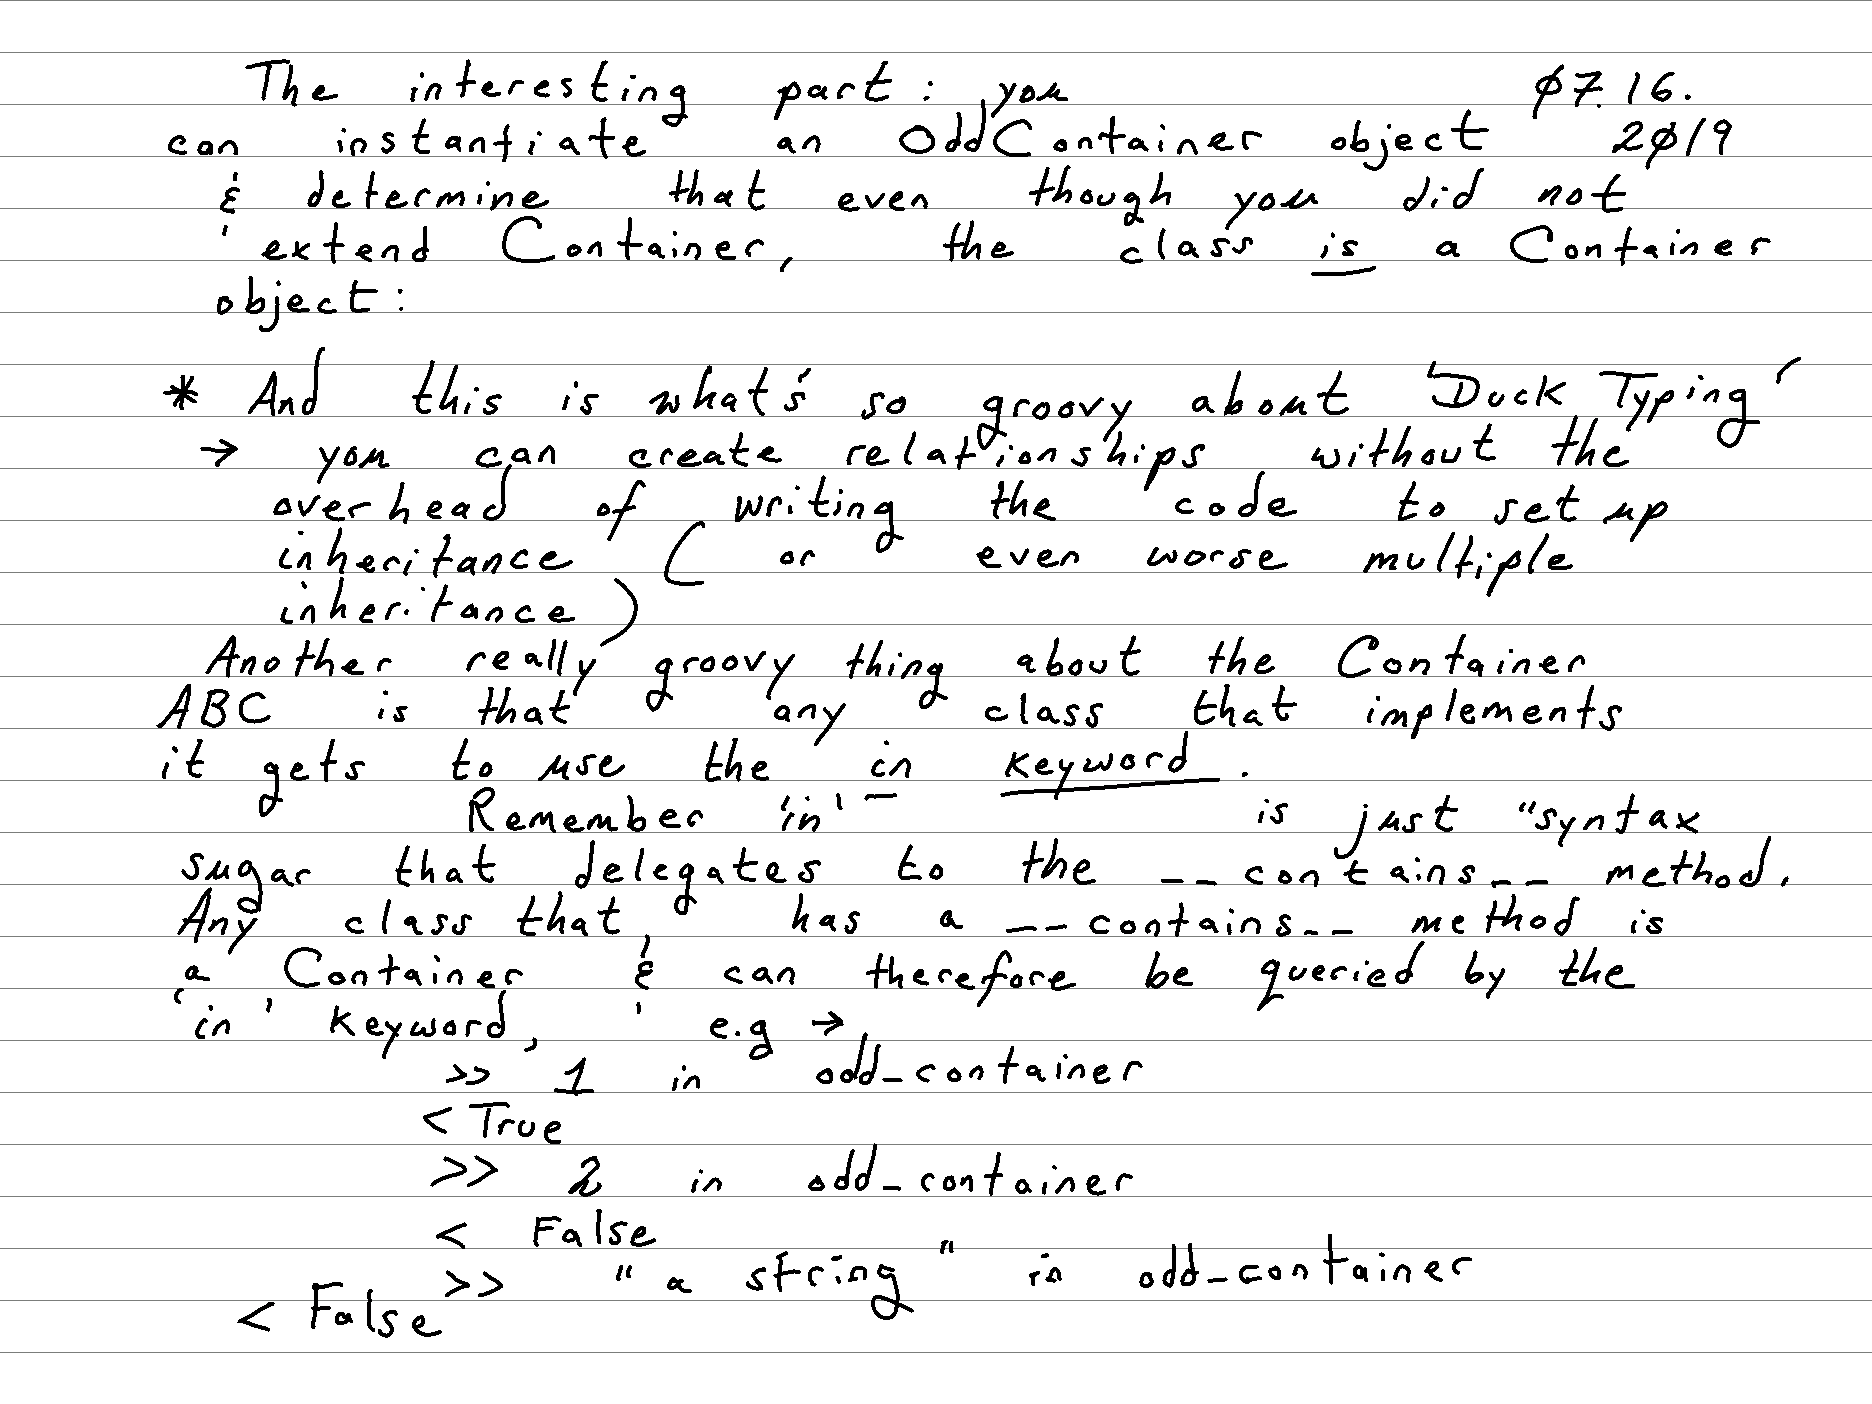 The interesting part: you 07.16.
can instantiate an OddContainer object 2019
& determine that even though you did not
extend Container, the class is a Container
object:
* And this is what's so groovy about 'Duck Typing'
→ you can create relationships without the
overhead of writing the code to set up
inheritance ( or even worse multiple
inheritance )
Another really groovy thing about the Container
ABC is that any class that implements
it gets to use the in keyword.
Remember 'in' is just "syntax
sugar that delegates to the __contains__ method.
Any class that has a __contains__ method is
a Container & can therefore be queried by the
'in' keyword, e.g →
>> 1 in odd_container
< True
>> 2 in odd_container
< False
>> "a string" in odd_container
< False